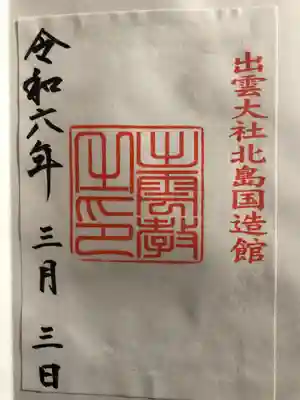 出雲大社北島国造館
出雲教
之印
令和六年 三月 三日